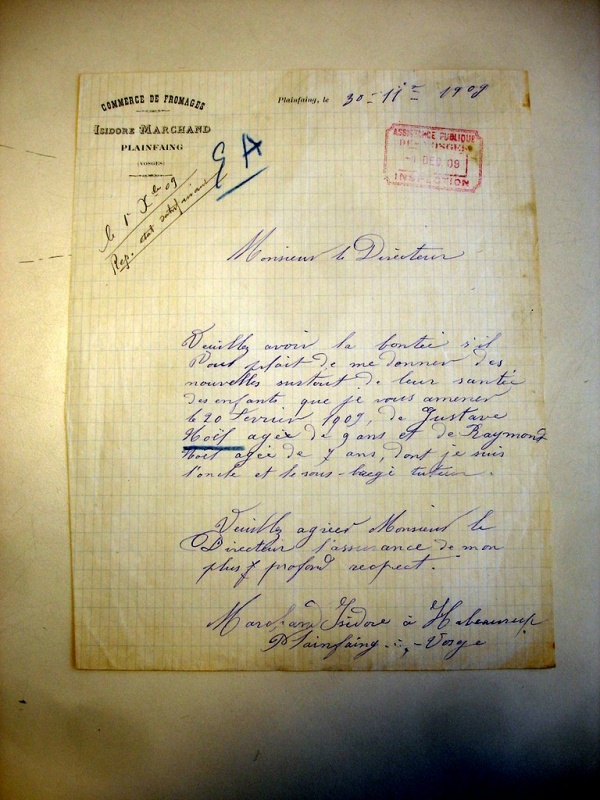 COMMERCE DE FROMAGES
ISIDORE MARCHAND
PLAINFAING
(VOSGES)
Plainfaing, le 30 - 11 - 1909
ASSISTANCE PUBLIQUE
DES VOSGES
1 DEC 09
INSPECTION
le 1r Xbre 09
Rep. état satisfaisant
Monsieur le Directeur
Veuillez avoir la bontée s'il
Vous plait de me donner des
nouvelles surtout de leur santée
des enfants que je vous amener
le 20 Fevrier 1909, de Gustave
Noël agée de 9 ans et de Raymond
Noël agée de 7 ans, dont je suis
l'oncle et le sous-baegé tuteur.
Veuillez agréer Monsieur le
Directeur l'assurance de mon
plus profond respect.
Marchand Isidore à Habeaurup
Plainfaing - Vosge